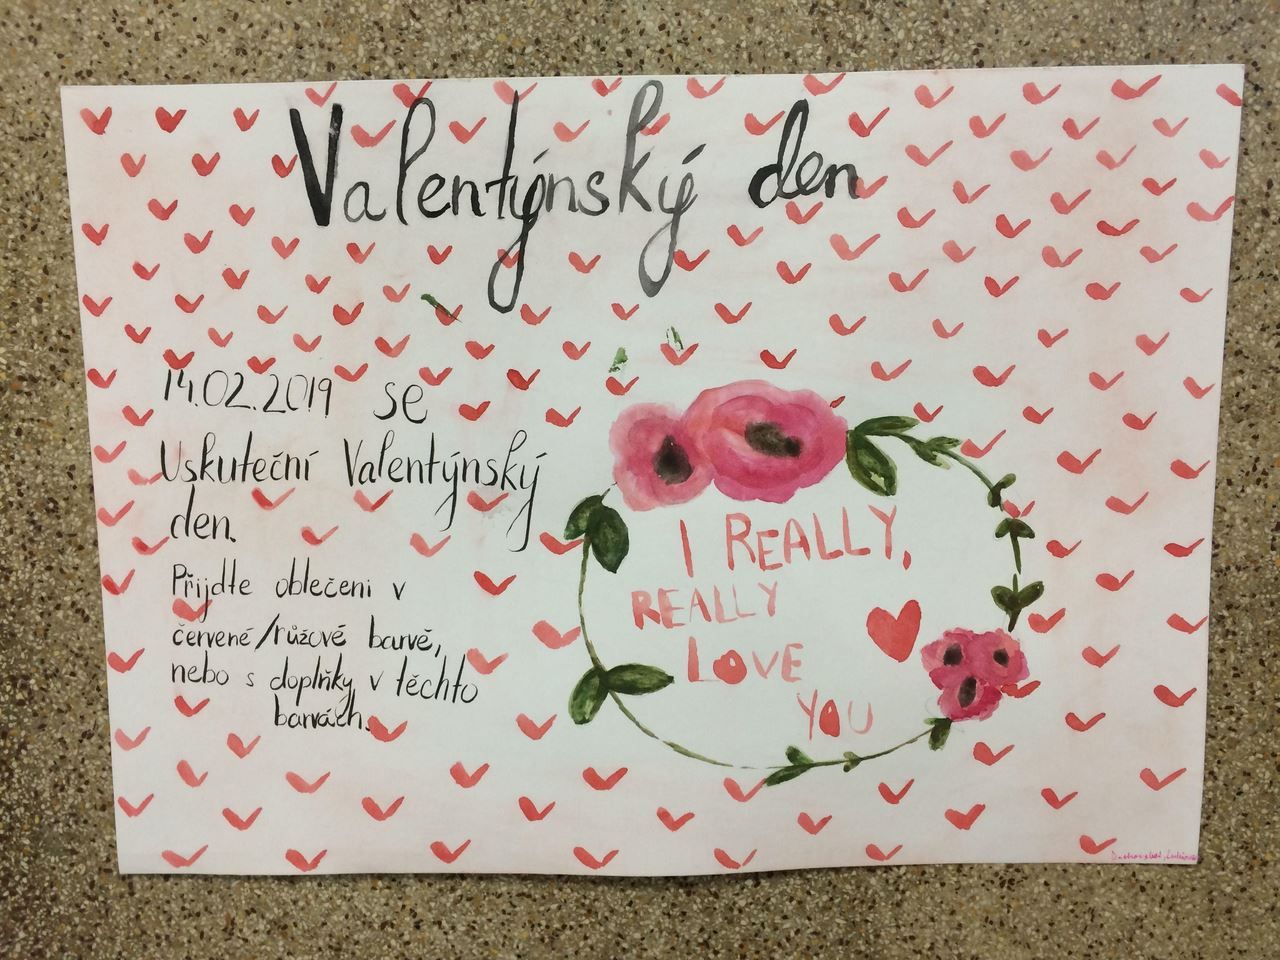 Valentýnský den
14.02.2019 se
Uskuteční Valentýnský
den.
Přijdte oblečeni v
červené/růžové barvě,
nebo s doplňky v těchto
barvách.
I REALLY,
REALLY
LOVE
YOU